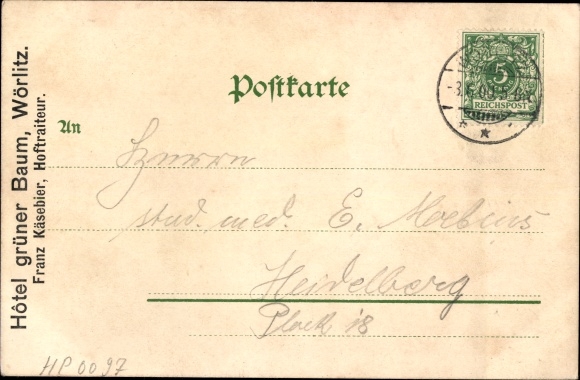 Hôtel grüner Baum, Wörlitz.
Franz Käsebier, Hoftraiteur.
Postkarte
An
Herrn
stud. med. E. Moebius
Heidelberg
Plöck 18
5
REICHSPOST
HP 0097